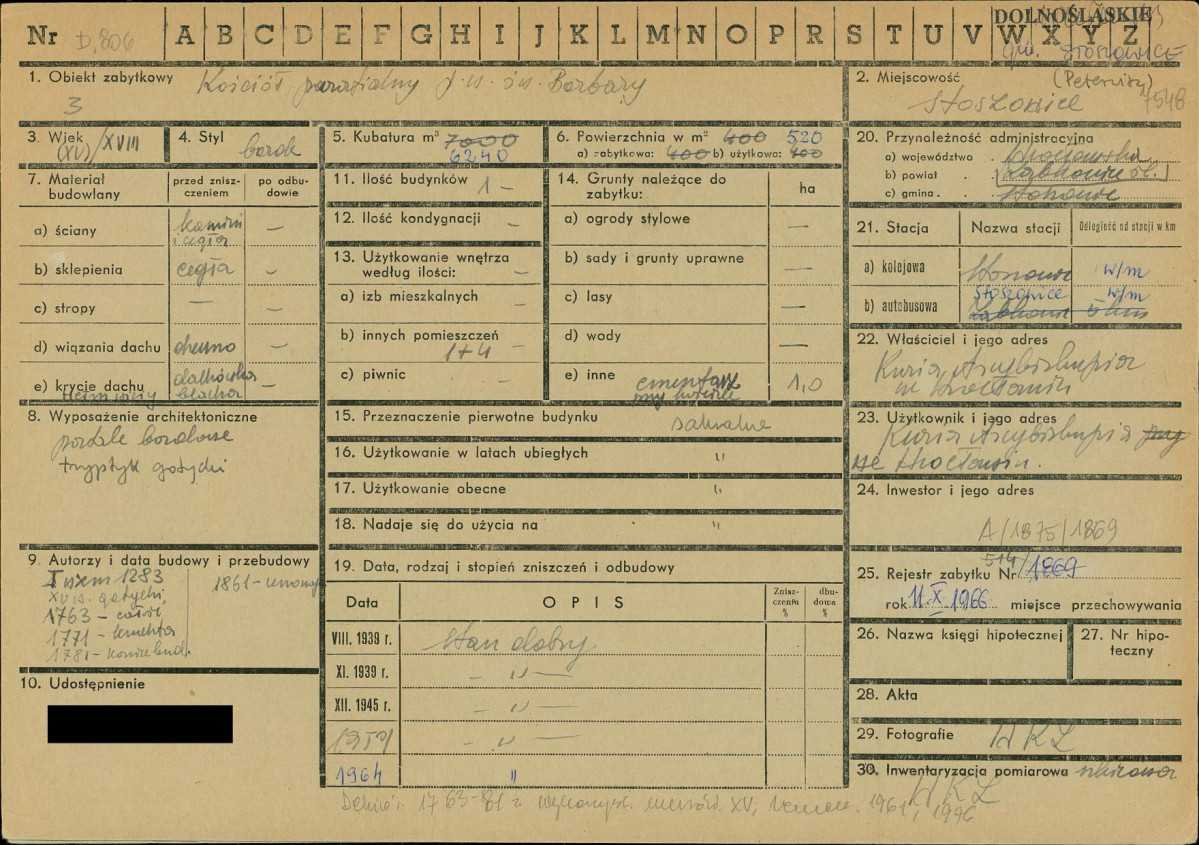 Nr D,806 A B C D E F G H I J K L M N O P R S T U V W X Y Z
DOLNOŚLĄSKIE
gm. STOSZOWICE
1. Obiekt zabytkowy Kościół parafialny p.w. św. Barbary
3
2. Miejscowość (Peterwitz)
Stoszowice 7548
3. Wiek (XV)/XVIII
4. Styl barok
5. Kubatura m³ 7000
6240
6. Powierzchnia w m² 400 520
a) zabytkowa: 400 b) użytkowa: 400
7. Materiał budowlany
przed zniszczeniem
po odbudowie
a) ściany kamień i cegła —
b) sklepienia cegła —
c) stropy — —
d) wiązania dachu drewno —
e) krycie dachu dachówka blacha —
8. Wyposażenie architektoniczne
portale barokowe
tryptyk gotycki
9. Autorzy i data budowy i przebudowy
I wzm 1283
XV w. gotycki,
1763 – całość
1771 – kruchta
1781 – koniec bud.
1861 – renowacja
10. Udostępnienie
11. Ilość budynków 1 –
12. Ilość kondygnacji –
13. Użytkowanie wnętrza według ilości: –
a) izb mieszkalnych –
b) innych pomieszczeń 1+4 –
c) piwnic –
14. Grunty należące do zabytku: ha
a) ogrody stylowe —
b) sady i grunty uprawne —
c) lasy —
d) wody —
e) inne cmentarz przy kościele 1,0
15. Przeznaczenie pierwotne budynku sakralne
16. Użytkowanie w latach ubiegłych "
17. Użytkowanie obecne "
18. Nadaje się do użycia na "
19. Data, rodzaj i stopień zniszczeń i odbudowy
Data OPIS Zniszczenia % dbudowa %
VIII. 1939 r. Stan dobry
XI. 1939 r. – " —
XII. 1945 r. – " —
1959 – " —
1964 "
20. Przynależność administracyjna
a) województwo . Wrocławskie
b) powiat . Ząbkowice Śl.
c) gmina . Stoszowice
21. Stacja Nazwa stacji Odległość od stacji w km
a) kolejowa Stoszowice w/m
b) autobusowa Stoszowice w/m
Ząbkowice 5 km
22. Właściciel i jego adres
Kuria Arcybiskupia
we Wrocławiu
23. Użytkownik i jego adres
Kuria Arcybiskupia
we Wrocławiu.
24. Inwestor i jego adres
A/1875/1869
25. Rejestr zabytku Nr 514/1869
rok 11.X.1966 miejsce przechowywania
26. Nazwa księgi hipotecznej
27. Nr hipoteczny
28. Akta
29. Fotografie WKZ
30. Inwentaryzacja pomiarowa
WKZ
Dehio: 1763-81 z wykorzyst. murów XV, remon. 1961, 1996